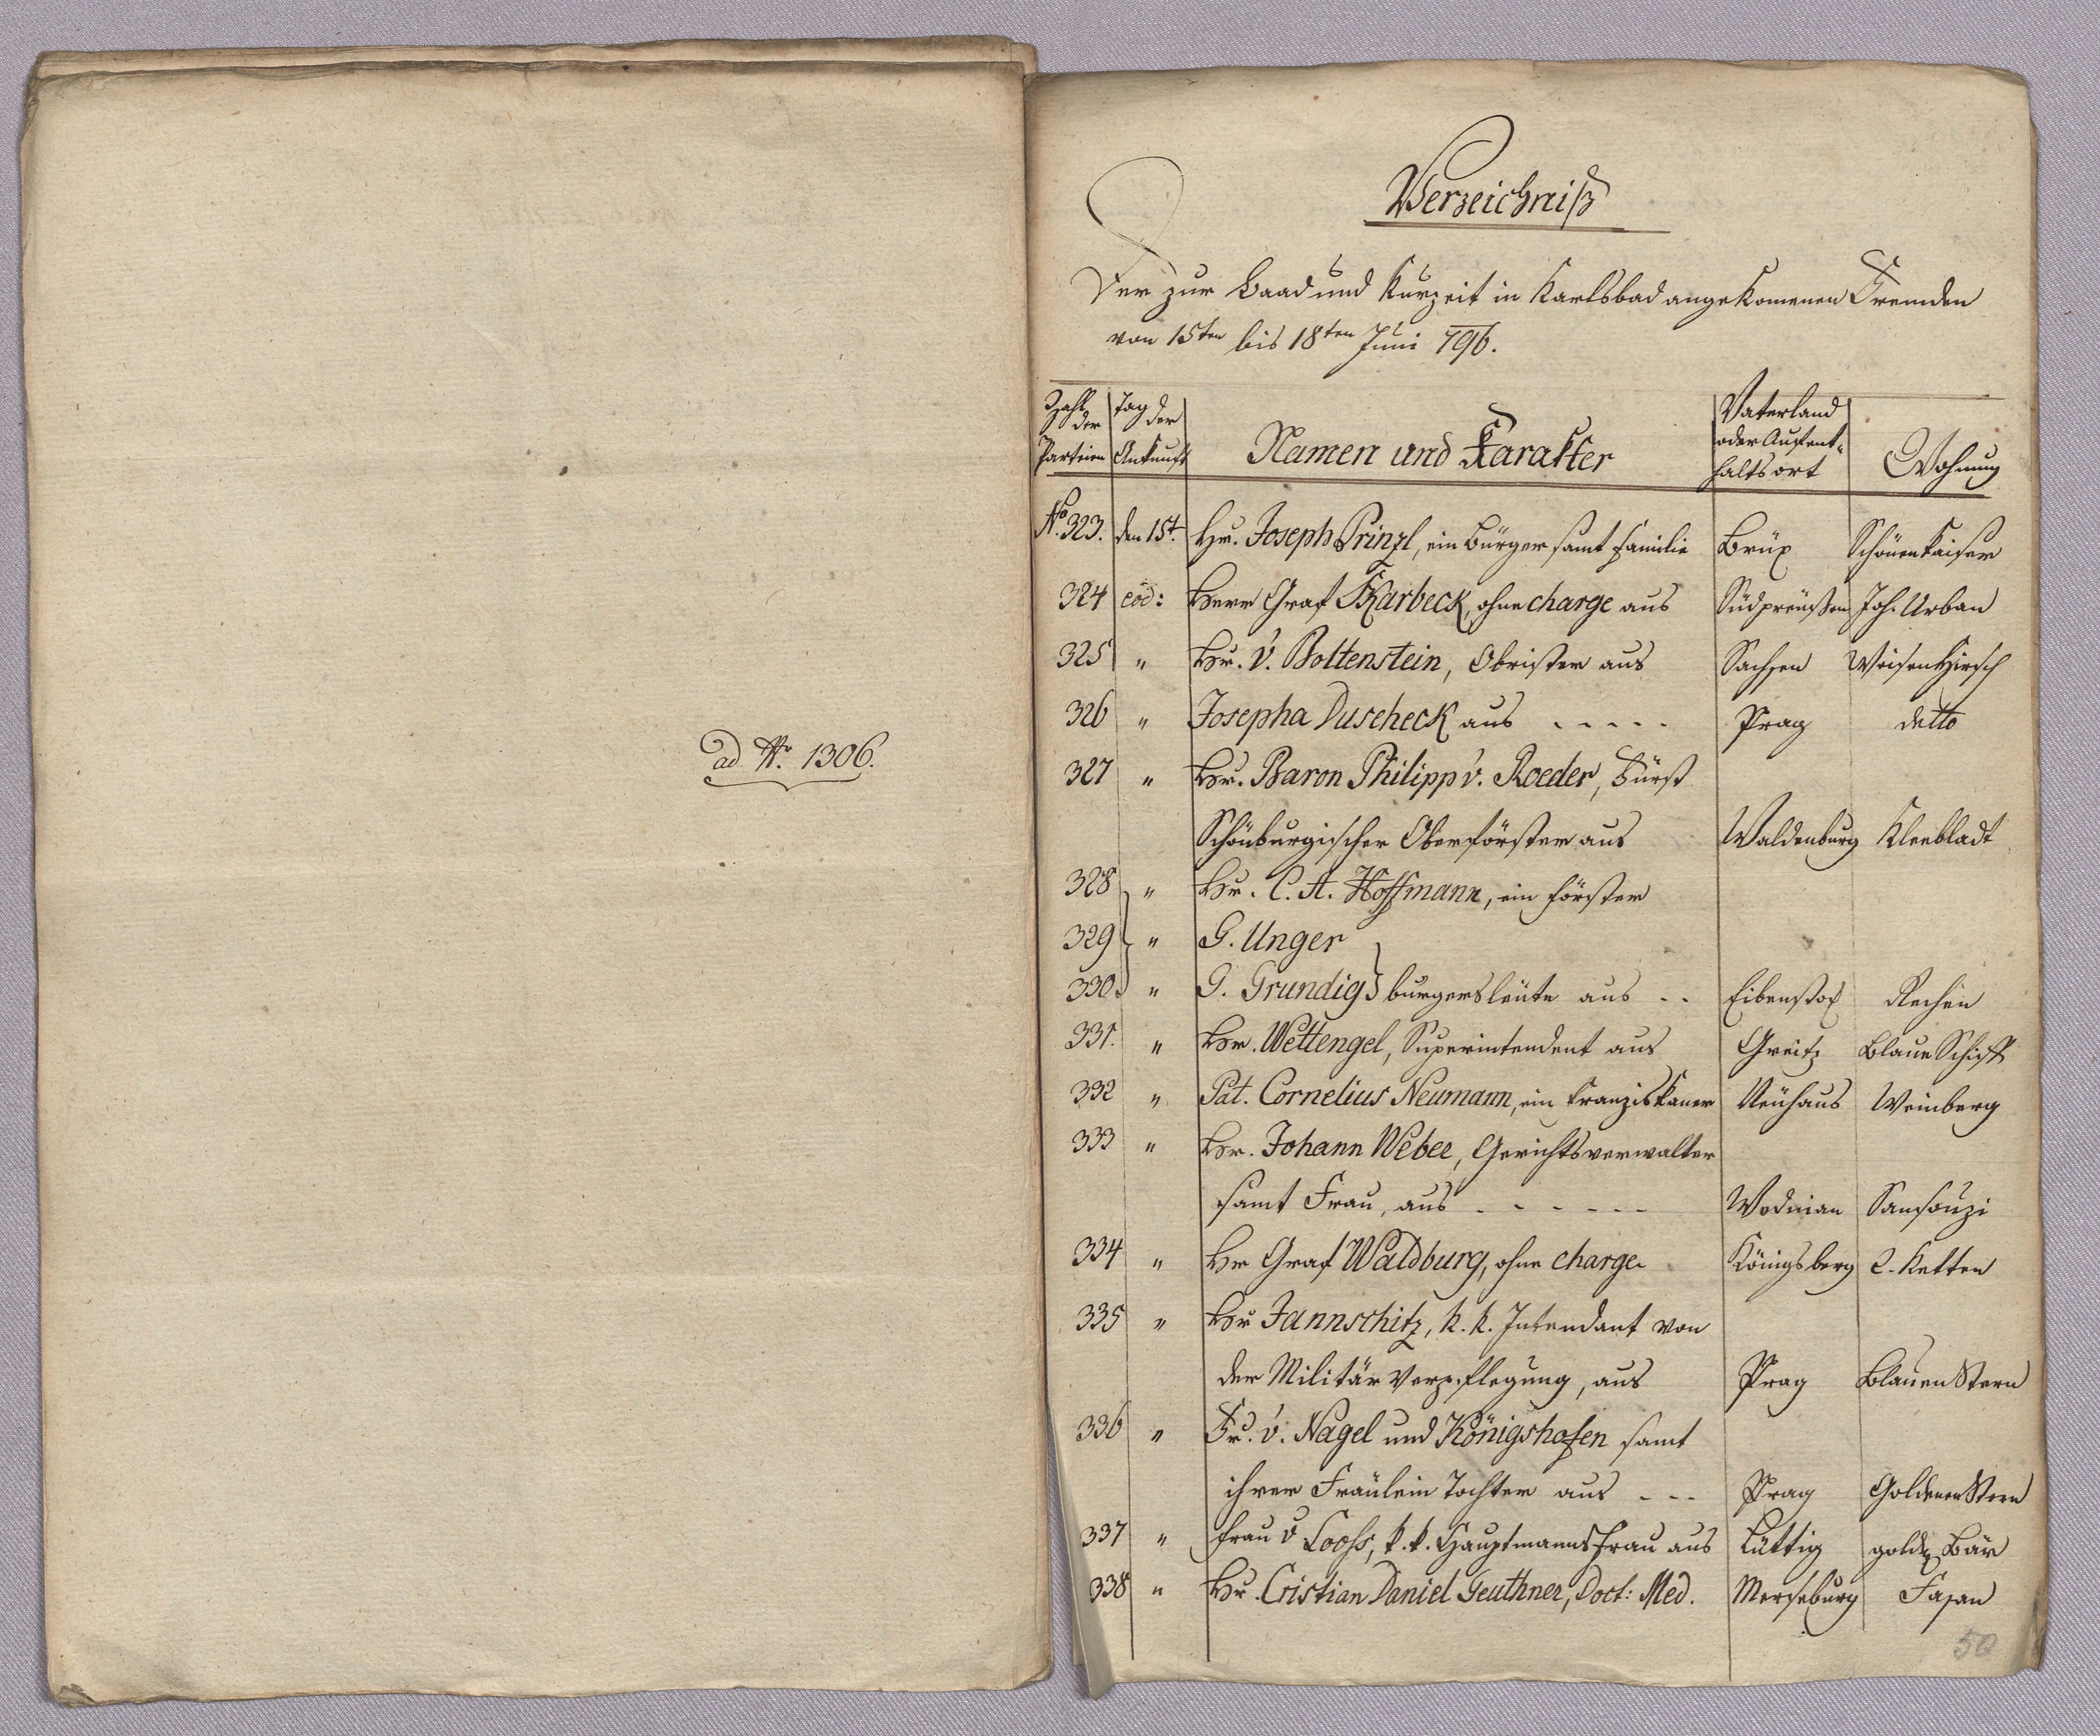 ad Nr. 1306.
Verzeichniß
Der zur Baad und Kurzeit in Karlsbad angekomenen Fremden
von 15ten bis 18ten Juni 796.
Zahl der Parteien | Tag der Ankunft | Namen und Karakter | Vaterland oder Aufenthaltsort | Wohnung
No. 323. den 15t. Hr. Joseph Prinzl, ein Bürger samt Familie Brüx Schönen Kaiser
324 eod: Herr Graf Skarbeck, ohne charge aus Südpreüßen Joh. Urban
325 " Hr. v. Bottenstein, Obrister aus Sachsen Weisen Hirsch
326 " Josepha Duscheck aus - - - - - Prag detto
327 " Hr. Baron Philipp v. Roeder, Fürst
Schönburgischer Oberförster aus Waldenburg Kleebladt
328 " Hr. C. A. Hoffmann, ein Förster
329 " G. Unger
330. " G. Grundig } burgersleüte aus - - Eibenstok Rechen
331. " Hr. Wettengel, Superintendent aus Greitz Blaue Schiff
332 " Pat. Cornelius Neumann, ein Franziskaner Neühaus Weinberg
333 " Hr. Johann Weber, Gerichtsverwalter
samt Frau, aus - - - - - - Wodnian Sansouzi
334 " Hr Graf Waldburg, ohne charge Königsberg 2. Ketten
335 " Hr Jannschitz, k. k. Intendant von
der Militär Verpflegung, aus Prag Blauen Stern
336 " Fr. v. Nagel und Königshofen samt
ihrer Fräulein Tochter aus - - - Prag Goldenen Stern
337 " Frau v Looss, k. k. Hauptmanns Frau aus Lüttig golde Bär
338 " Hr. Cristian Daniel Geuthner, Doct: Med. Merseburg Fasan
50